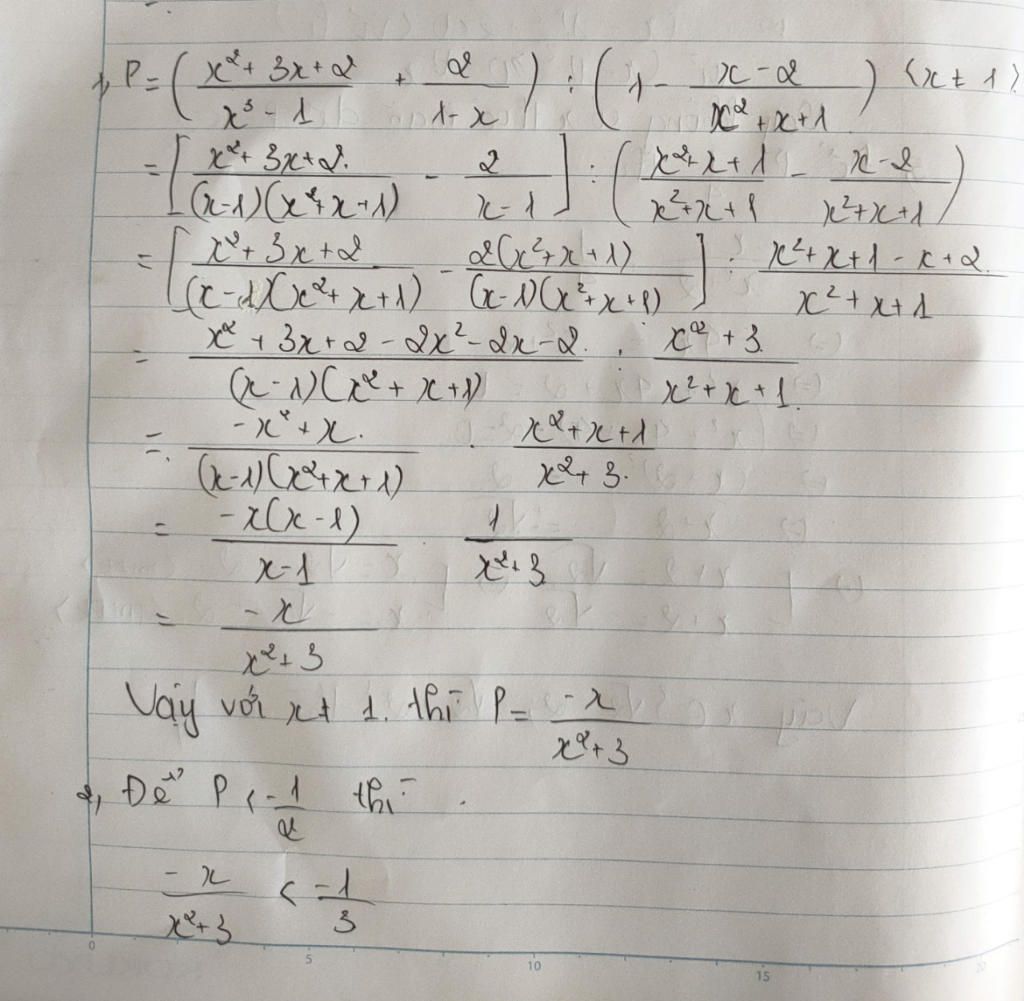 1, P = ( (x² + 3x + 2)/(x³ - 1) + 2/(1 - x) ) : ( 1 - (x - 2)/(x² + x + 1) ) (x ≠ 1)
= [ (x² + 3x + 2.)/((x-1)(x² + x + 1)) - 2/(x - 1) ] : ( (x² + x + 1)/(x² + x + 1) - (x - 2)/(x² + x + 1) )
= [ (x² + 3x + 2)/((x - 1)(x² + x + 1)) - 2(x² + x + 1)/((x-1)(x² + x + 1)) ] : (x² + x + 1 - x + 2)/(x² + x + 1)
= (x² + 3x + 2 - 2x² - 2x - 2.)/((x - 1)(x² + x + 1)) : (x² + 3)/(x² + x + 1.)
= (-x² + x.)/((x-1)(x² + x + 1)) . (x² + x + 1)/(x² + 3.)
= (-x(x - 1))/(x - 1) . 1/(x² + 3)
= (-x)/(x² + 3)
Vậy với x ≠ 1. thì P = (-x)/(x² + 3)
2, Để P < -1/2 thì .
(-x)/(x² + 3) < (-1)/3
0 5 10 15 20